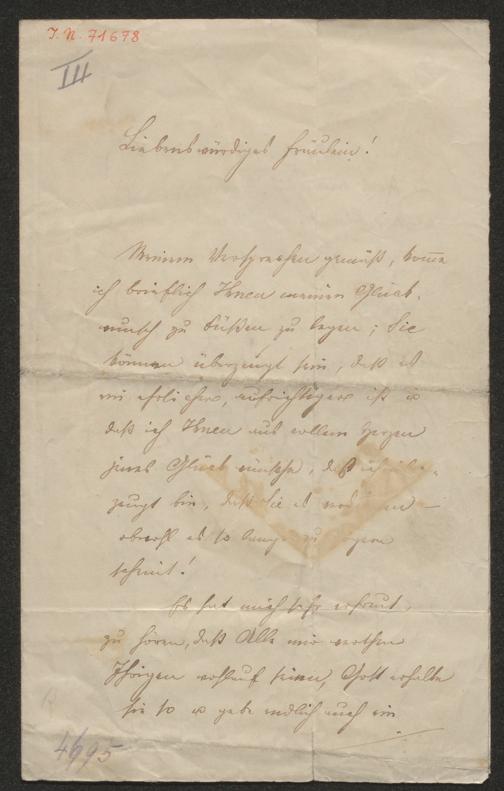 J. N. 71678
III
Liebenswürdiges Fräulein!
Meinem Versprechen gemäß, komme
ich brieflich Ihnen meinen Glück-
wunsch zu Füßen zu legen; Sie
können überzeugt sein, daß es
ein ehrlicher, aufrichtiger ist u
daß ich Ihnen aus vollem Herzen
jenes Glück wünsche, daß ich über-
zeugt bin, daß Sie es
obwohl es so lange zu zögern
scheint!
Es hat mich sehr erfreut,
zu hören, daß Alle mir werthen
Ihrigen wohlauf seien, Gott erhalte
sie so u gebe endlich auch ein
4695